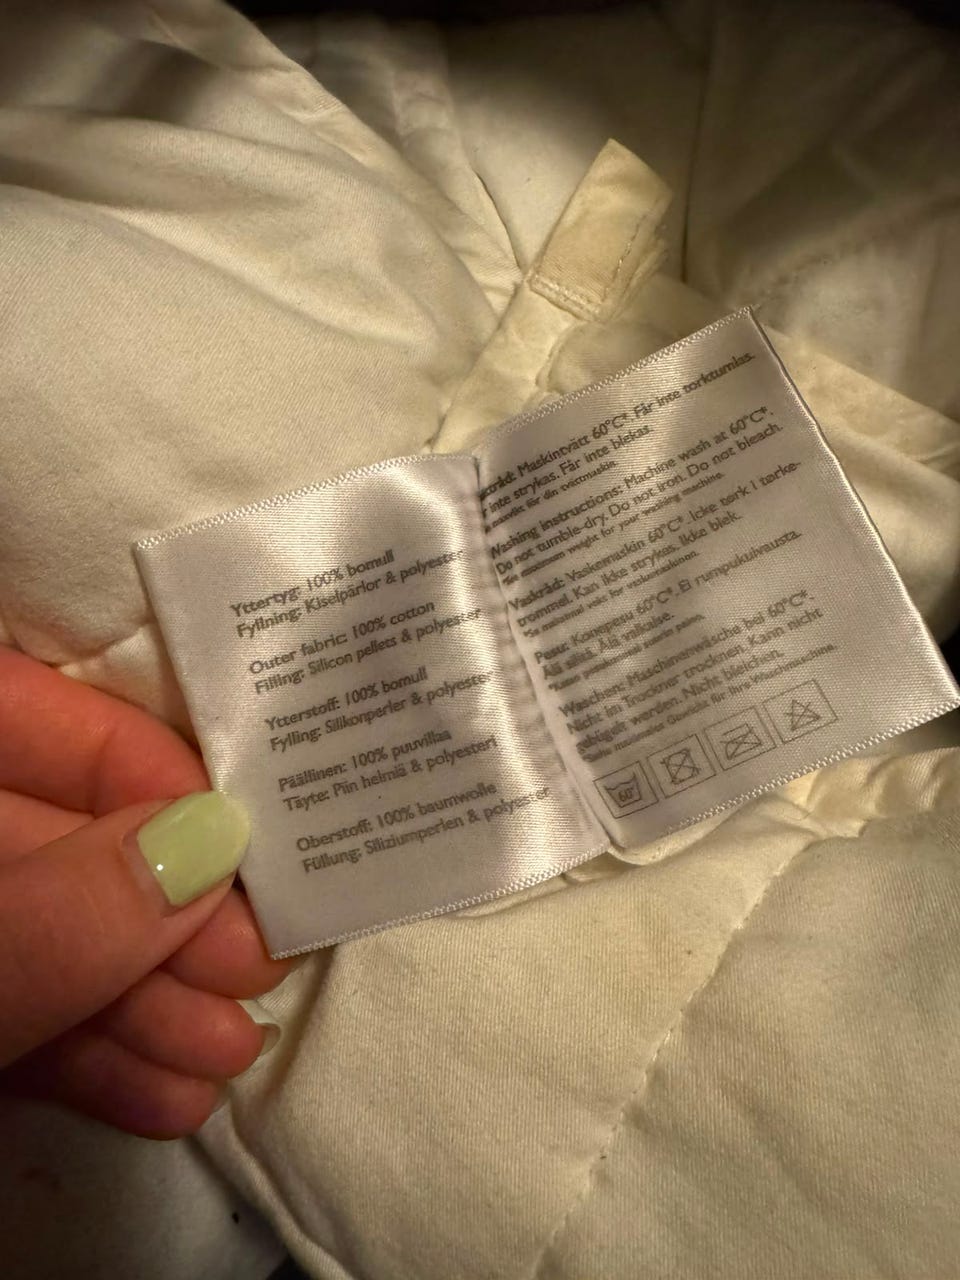 Yttertyg: 100% bomull
Fyllning: Kiselpärlor & polyester
Outer fabric: 100% cotton
Filling: Silicon pellets & polyester
Ytterstoff: 100% bomull
Fylling: Silikonperler & polyester
Päällinen: 100% puuvillaa
Täyte: Piin helmiä & polyesteri
Oberstoff: 100% baumwolle
Füllung: Siliziumperlen & polyester
Maskintvätt 60°C*. Får inte torktumlas.
inte strykas. Får inte blekas.
för din tvättmaskin.
Washing instructions: Machine wash at 60°C*.
Do not tumble-dry. Do not iron. Do not bleach.
*See maximum weight for your washing machine.
Vaskråd: Vaskemaskin 60°C*. Ikke tørk i tørke-
trommel. Kan ikke strykes. Ikke blek.
*Se maksimal vekt for vaskemaskinen.
Pesu: Konepesu 60°C*. Ei rumpukuivausta.
Älä silitä. Älä valkaise.
Waschen: Maschinenwäsche bei 60°C*.
Nicht im Trockner trocknen. Kann nicht
gebügelt werden. Nicht bleichen.
*Siehe maximales Gewicht für Ihre Waschmaschine.
60°